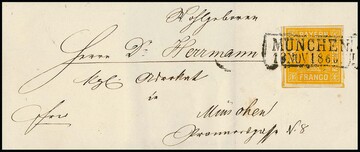 Wohlgeboren
Herrn Dr. Herrmann
kgl. Advokat
in
München
Promenadegasse N. 8
BAYERN
FRANCO
MÜNCHEN.
NOV 186